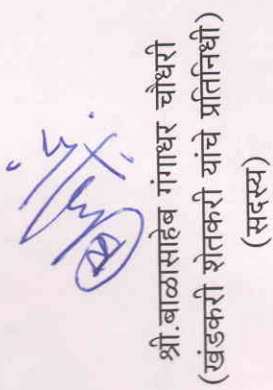 श्री.बाळासाहेब गंगाधर चौधरी
(खंडकरी शेतकरी यांचे प्रतिनिधी)
(सदस्य)